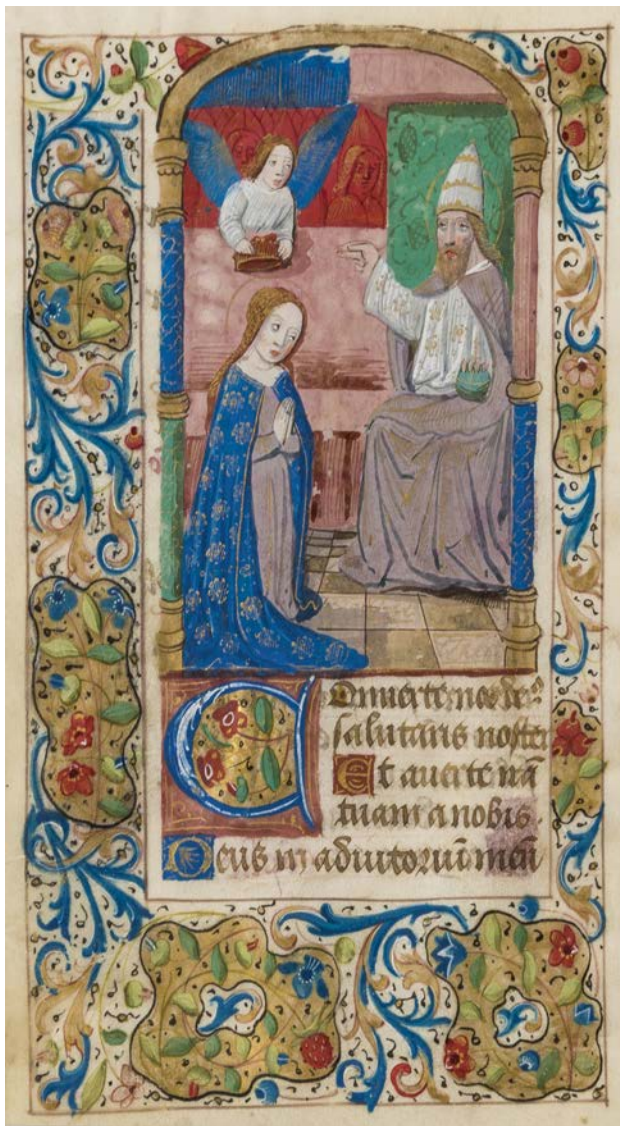 Conuerte nos deꝰ
salutaris noster
Et auerte irā
tuam a nobis.
Deus in adiutoriū meū